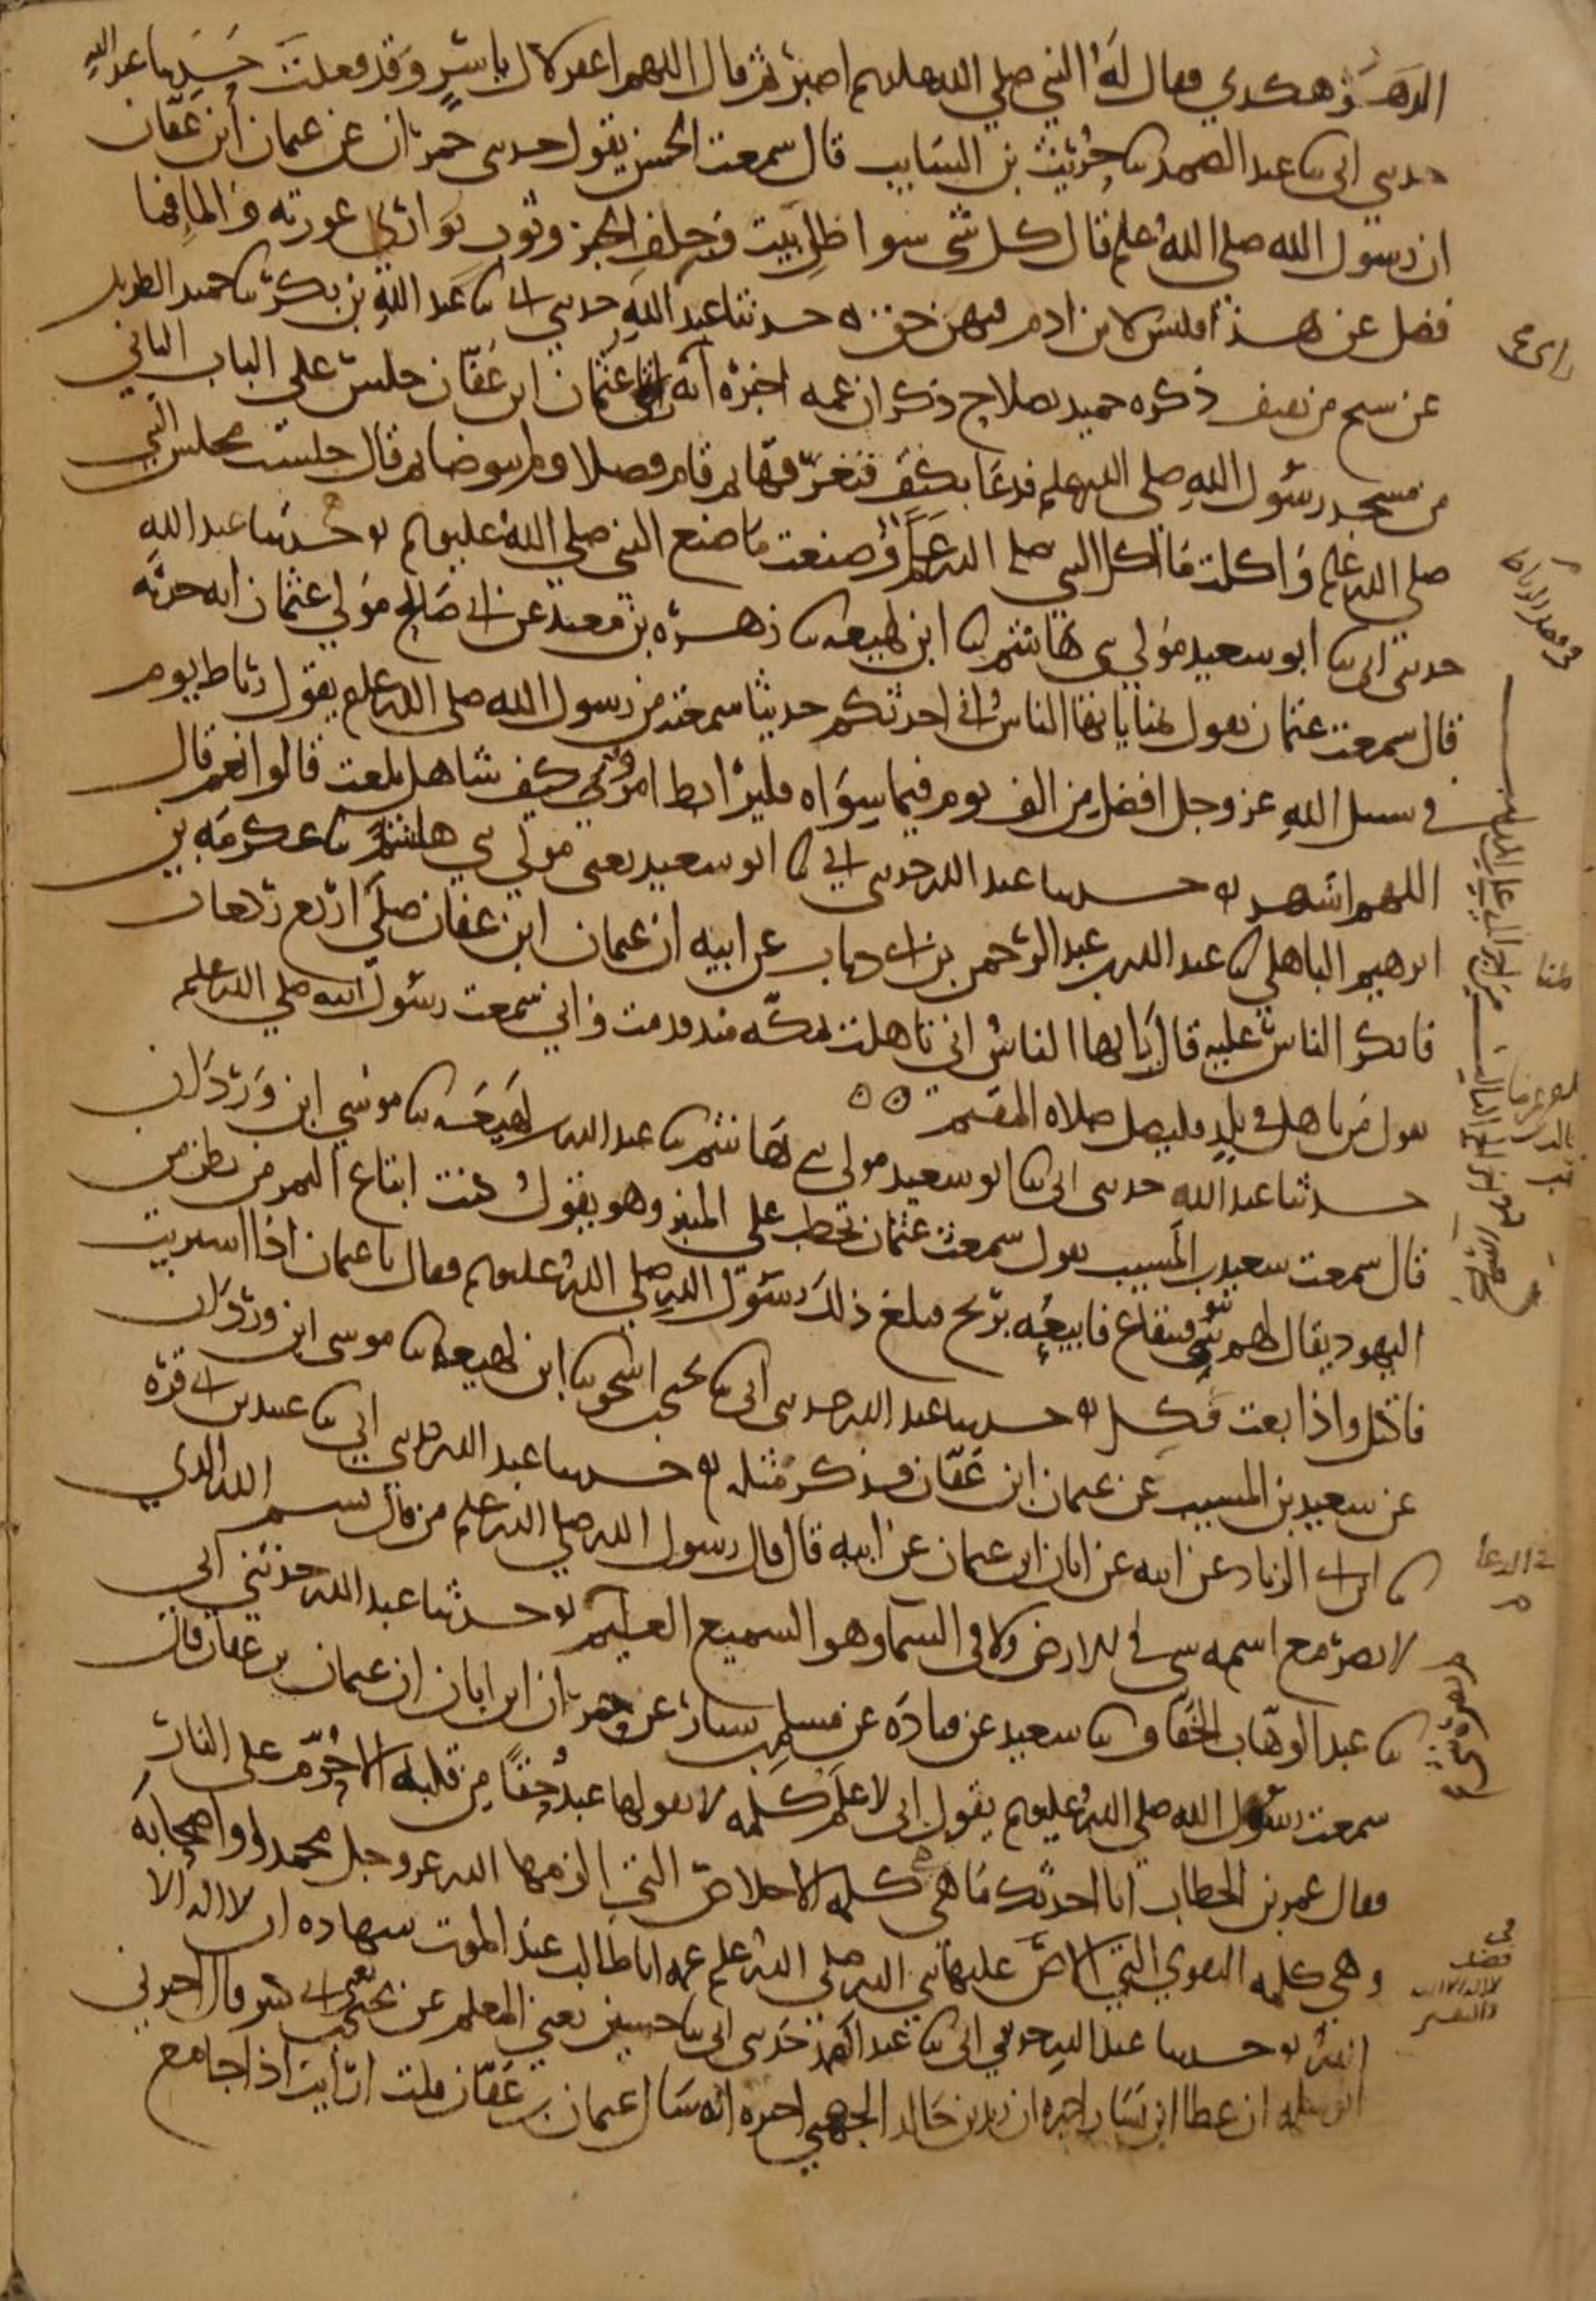 الدهر هكدي فقال له النبي صلي الله عليه وسلم اصبر ثم قال اللهم اغفر لال ياسر وقد فعلت حدثنا عبد الله
حدثني ابي ثنا عبد الصمد ثنا حريث بن السايب قال سمعت الحسن يقول حدثني حمران عن عثمان ابن عفان
ان رسول الله صلى الله عليه وسلم قال كل شي سوا ظل بيت وجلف الخبز وثوب يواري عورته والما فما
فضل عن هذا فليس لابن ادم فيهن حق ه حدثنا عبد الله حدثني ابي ثنا عبد الله بن بكر ثنا حميد الطويل
عن شيخ من ثقيف ذكره حميد بصلاح ذكر ان عمه اخبره انه راى عثمان ابن عفان جلس على الباب الثاني
من مسجد رسول الله صلى الله عليه وسلم فدعا بكتف فتعرقها ثم قام وصلا ولم يتوضا ثم قال جلست مجلس النبي
صلى الله عليه وسلم واكلت ما اكل النبي صلى الله عليه وسلم وصنعت ما صنع النبي صلي الله عليه وسلم ه حدثنا عبد الله
حدثني ابي ثنا ابو سعيد مولي بني هاشم ثنا ابن لهيعه ثنا زهره بن معبد عن ابي صالح مولي عثمان انه حدثه
قال سمعت عثمان يقول بمنا يا ايها الناس اني احدثكم حديثا سمعته من رسول الله صلى الله عليه وسلم يقول رباط يوم
في سبيل الله عز وجل افضل من الف يوم فيما سواه فليرابط امرؤ كيف شا هل بلغت قالوا نعم قال
اللهم اشهد ه حدثنا عبد الله حدثني ابي ثنا ابو سعيد يعني مولي بني هاشم ثنا عكرمه بن
ابرهيم الباهلي ثنا عبد الله بن عبد الرحمن بن ابي ذباب عن ابيه ان عثمان ابن عفان صلى اربع ركعات
فانكر الناس عليه قال يا ايها الناس اني تاهلت بمكه منذ قدمت واني سمعت رسول الله صلي الله عليه وسلم
يقول من تاهل في بلد فليصل صلاه المقيم ه ه
حدثنا عبد الله حدثني ابي ثنا ابو سعيد مولى بني هاشم ثنا عبد الله بن لهيعه ثنا موسي ابن وردان
قال سمعت سعيد بن المسيب يقول سمعت عثمان يخطب على المنبر وهو يقول كنت ابتاع التمر من بطن من
اليهود يقال لهم بنو قينقاع فابيعه بربح فبلغ ذلك رسول الله صلي الله عليه وسلم فقال يا عثمان اذا اشتريت
فاكتل واذا بعت فكل ه حدثنا عبد الله حدثني ابي ثنا يحيى بن اسحق ثنا ابن لهيعه ثنا موسى ابن وردان
عن سعيد بن المسيب عن عثمان ابن عفان فذكر مثله ه حدثنا عبد الله حدثني ابي ثنا عبيد بن ابي قره
ثنا ابن ابي الزناد عن ابيه عن ابان ابن عثمان عن ابيه قال قال رسول الله صلي الله عليه وسلم من قال بسم الله الدي
لا يضر مع اسمه شي في الارض ولا في السما وهو السميع العليم ه حدثنا عبد الله حدثني ابي
ثنا عبد الوهاب الخفاف ثنا سعيد عن قتاده عن مسلم بن يسار عن حمران ابن ابان ان عثمان بن عفان قال
سمعت رسول الله صلي الله عليه وسلم يقول اني لاعلم كلمه لا يقولها عبد حقا من قلبه الا حرم على النار
فقال عمر بن الخطاب انا احدثك ما هي كلمه الاخلاص التي الزمها الله عز وجل محمدا واصحابه
وهي كلمه التقوي التي الاص عليها نبي الله صلي الله عليه وسلم عمه ابا طالب عند الموت شهاده ان لا اله الا
الله ه حدثنا عبد الله حدثني ابي ثنا عبد الصمد حدثني ابي ثنا حسين يعني المعلم عن يحيى يعني ابن ابي كثير قال اخبرني
ابو سلمه ان عطا ابن يسار اخبره ان زيد بن خالد الجهني اخبره انه سال عثمان بن عفان قلت ارايت اذا جامع
في الدعا
في فضل
لا اله الا الله
والتفسير